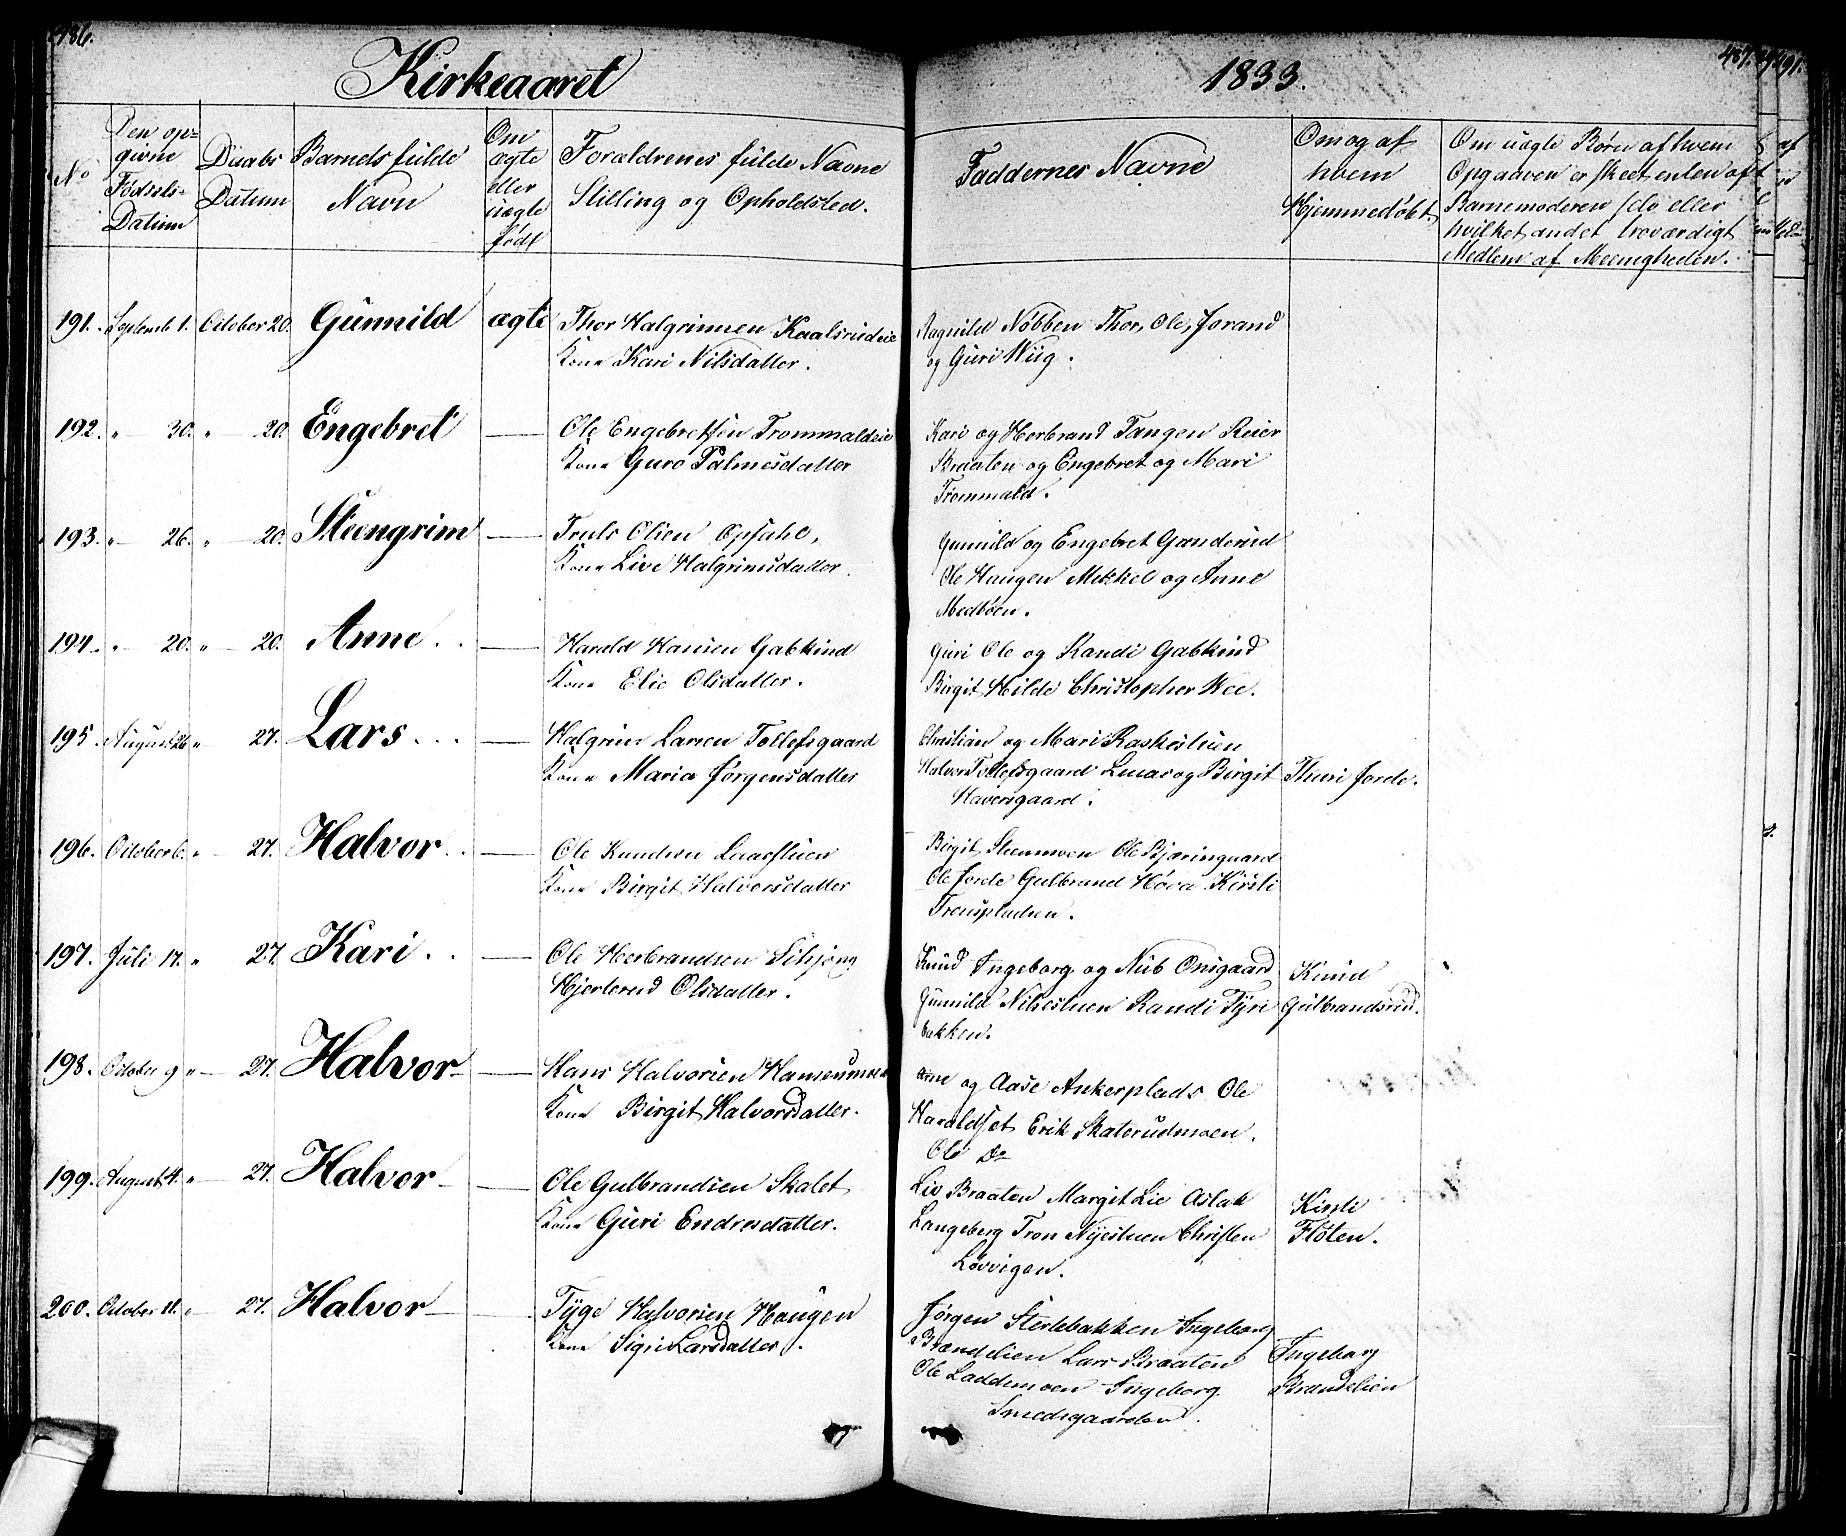 486.
Kirkeaaret
1833.
487.
491.
No
Den op=
givne
Fødsels=
Datum
Daabs
Datum
Barnets fulde
Navn
Om
ægte
eller
uægte
født
Forældrenes fulde Navne
Stilling og Opholdsted.
Faddernes Navne
Om og af
hvem
Hjemmedöbt
Om uægte Börn af hvem
Opgaaven er skeet enten af
Barnemoderen selv eller
hvilket andet troværdigt
Medlem af Meenigheden.
191. Septemb 1. October 20. Gunnild ægte Thor Halgrimsen Kaalsrudeie Ragnild Nöbben Thor, Ole, Jorand
Kone Kari Nilsdatter. og Guri Wiig.
192. " 30. " 20. Engebret — Ole Engebretsen Trommaldeie Kari og Herbrand Tangen Reier
Kone Guro Palmesdatter Braaten og Engebret og Mari
Trommald.
193. " 26. " 20. Steengrim — Truls Olsen Opsahl, Gunnild og Engebret Ganderud
Kone Live Halgrimsdatter. Ole Haugen Mikkel og Anne
Medböen.
194. " 20. " 20. Anne . . — Harald Hansen Gabkind Guri Ole og Randi Gabkind
Kone Elie Olsdatter. Birgit Hilde Christopher Wee.
195. August 26 " 27. Lars . . . — Halgrim Larsen Tollefsgaard Christian og Mari Raskesluen
Kone Maria Jörgensdatter Halvor Tollefsgaard Lucas og Birgit Thuri Jorde.
Haversgaard.
196. October 6. " 27. Halvor . . — Ole Knudsen Laarsluen Birgit Steenmoen Ole Bjæringaard
Kone Birgit Halvorsdatter Ole Jorde Gulbrand Höva Kirsti
Tronspladsen.
197. Juli 17. " 27. Kari . . — Ole Herbrandsen Lihjong Knud Ingeborg og Nub Onsgaard Knud
Hjerterud Olsdatter. Gunnild Nilsesluen Randi Tyri Gulbrandsrud.
bakken.
198. October 9 " 27. Halvor — Hans Halvorsen Hansemoen Arne og Aase Ankerplads Ole
Kone Birgit Halvorsdatter. Haraldset Erik Skaterudmoen.
Ole Do
199. August 4. " 27. Halvor — Ole Gulbrandsen Skalet Liv Braaten Margit Lie Aslak Kirsti
Kone Guri Endresdatter. Langeberg Tron Nyesluen Christen Flöten.
Lövvigen.
200. October 11. " 27. Halvor — Tyge Halvorsen Haugen Jörgen Sterlebakken Ingeborg
Kone Sigri Larsdatter. Brændelien Lars Braaten Ingeborg
Ole Laddemoen Ingeborg Brændelien
Smedsgaarden.